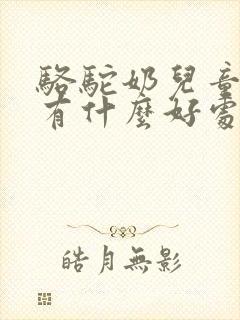 駱駝奶兒童
有什麼好處
皓月無影